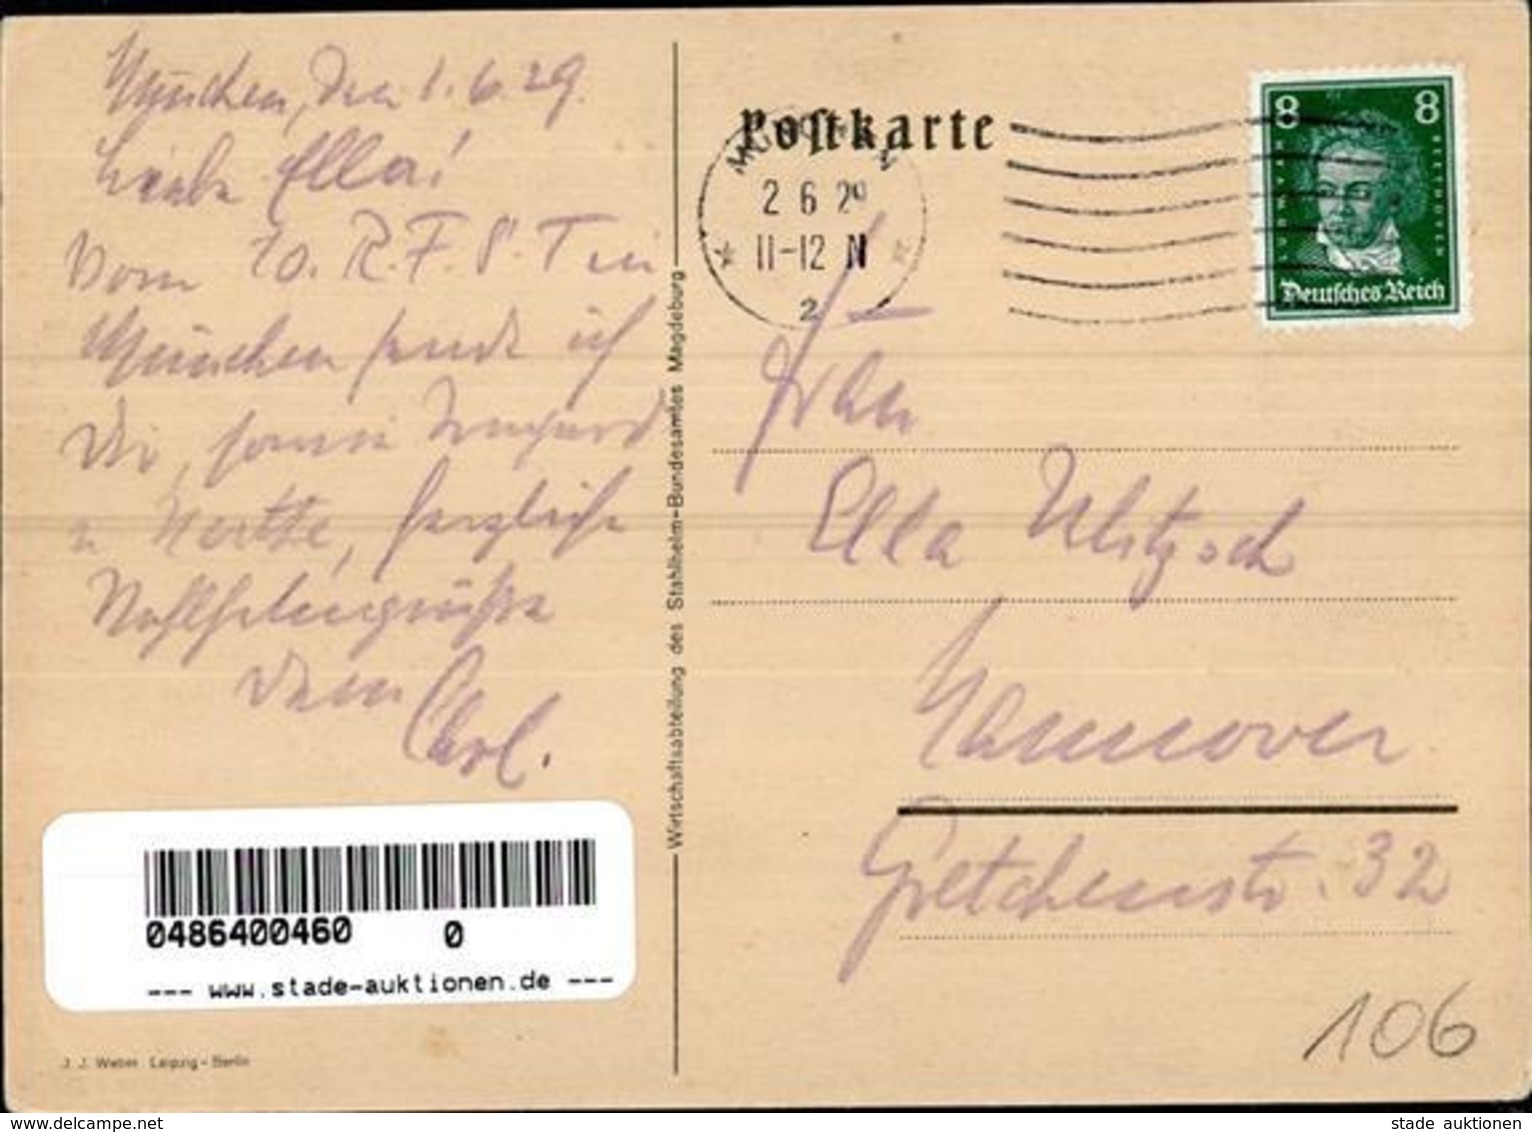 München, den 1.6.29.
Liebe Ella!
Vom 10. R.F.S.T in
München sende ich
Dir, sowie Irmgard
u Herthe, herzliche
Stahlhelmgrüße
Dein Carl.
0486400460 0
--- www.stade-auktionen.de ---
J. J. Weber Leipzig - Berlin
Wirtschaftsabteilung des Stahlhelm-Bundesamtes Magdeburg
Postkarte
MÜNCHEN
2 6 29
11-12 N
2
8 8
LUDWIG VAN BEETHOVEN
Deutsches Reich
Frau
Ella
Hannover
Gretchenstr. 32
106
stade auktionen
www.delcampe.net